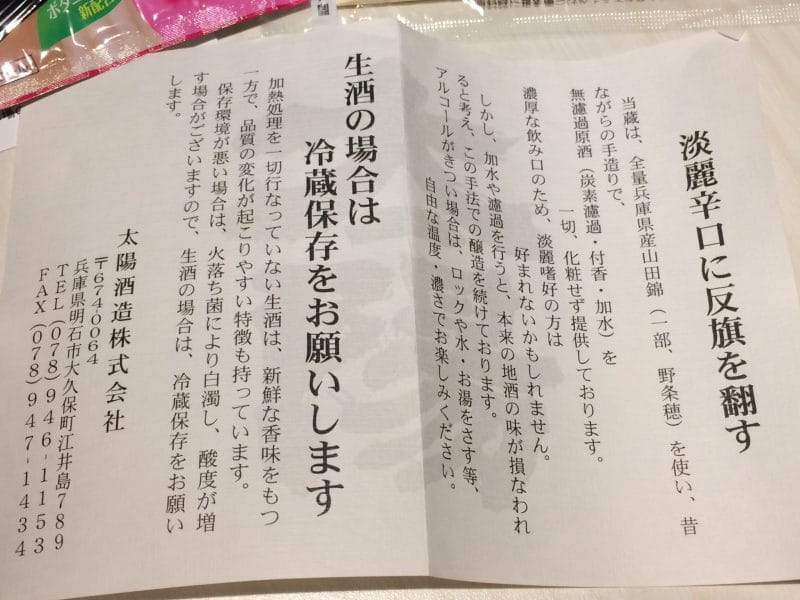 淡麗辛口に反旗を翻す
当蔵は、全量兵庫県産山田錦（一部、野条穂）を使い、昔
ながらの手造りで、
無濾過原酒（炭素濾過・付香・加水）を
一切、化粧せず提供しております。
濃厚な飲み口のため、淡麗嗜好の方は
好まれないかもしれません。
しかし、加水や濾過を行うと、本来の地酒の味が損なわれ
ると考え、この手法での醸造を続けております。
アルコールがきつい場合は、ロックや水・お湯をさす等、
自由な温度・濃さでお楽しみください。
生酒の場合は
冷蔵保存をお願いします
加熱処理を一切行なっていない生酒は、新鮮な香味をもつ
一方で、品質の変化が起こりやすい特徴も持っています。
保存環境が悪い場合は、火落ち菌により白濁し、酸度が増
す場合がございますので、生酒の場合は、冷蔵保存をお願い
します。
太陽酒造株式会社
〒674-0064
兵庫県明石市大久保町江井島789
TEL(078)946-1153
FAX(078)947-1434
新配合